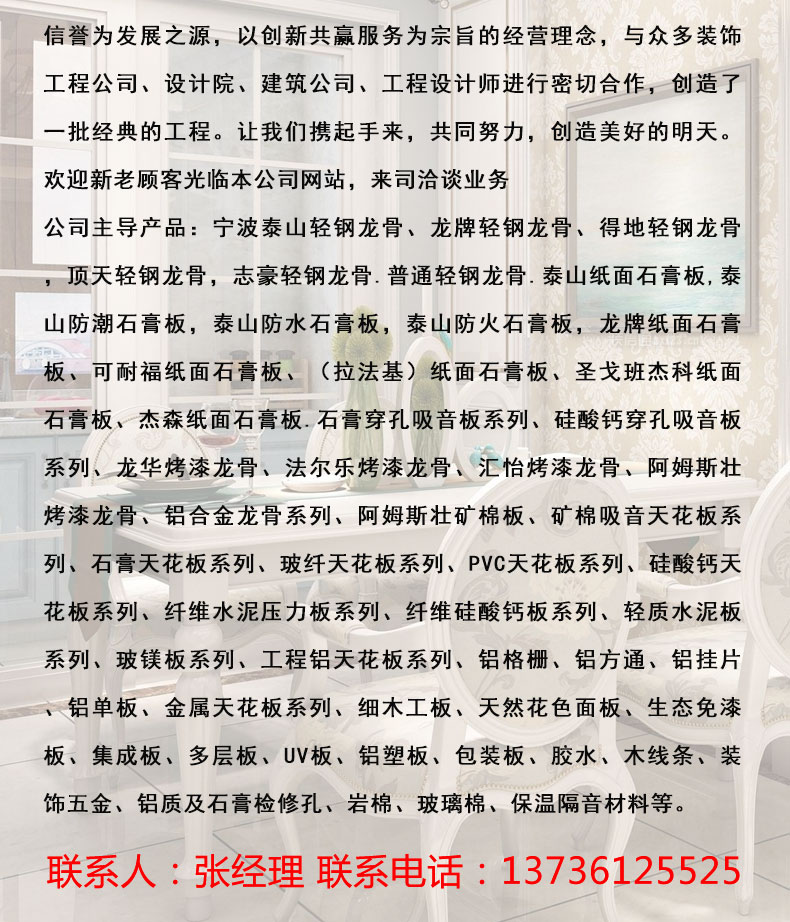 信誉为发展之源，以创新共赢服务为宗旨的经营理念，与众多装饰
工程公司、设计院、建筑公司、工程设计师进行密切合作，创造了
一批经典的工程。让我们携起手来，共同努力，创造美好的明天。
欢迎新老顾客光临本公司网站，来司洽谈业务
公司主导产品：宁波泰山轻钢龙骨、龙牌轻钢龙骨、得地轻钢龙骨
，顶天轻钢龙骨，志豪轻钢龙骨.普通轻钢龙骨.泰山纸面石膏板,泰
山防潮石膏板，泰山防水石膏板，泰山防火石膏板，龙牌纸面石膏
板、可耐福纸面石膏板、（拉法基）纸面石膏板、圣戈班杰科纸面
石膏板、杰森纸面石膏板.石膏穿孔吸音板系列、硅酸钙穿孔吸音板
系列、龙华烤漆龙骨、法尔乐烤漆龙骨、汇怡烤漆龙骨、阿姆斯壮
烤漆龙骨、铝合金龙骨系列、阿姆斯壮矿棉板、矿棉吸音天花板系
列、石膏天花板系列、玻纤天花板系列、PVC天花板系列、硅酸钙天
花板系列、纤维水泥压力板系列、纤维硅酸钙板系列、轻质水泥板
系列、玻镁板系列、工程铝天花板系列、铝格栅、铝方通、铝挂片
、铝单板、金属天花板系列、细木工板、天然花色面板、生态免漆
板、集成板、多层板、UV板、铝塑板、包装板、胶水、木线条、装
饰五金、铝质及石膏检修孔、岩棉、玻璃棉、保温隔音材料等。
联系人：张经理 联系电话：13736125525